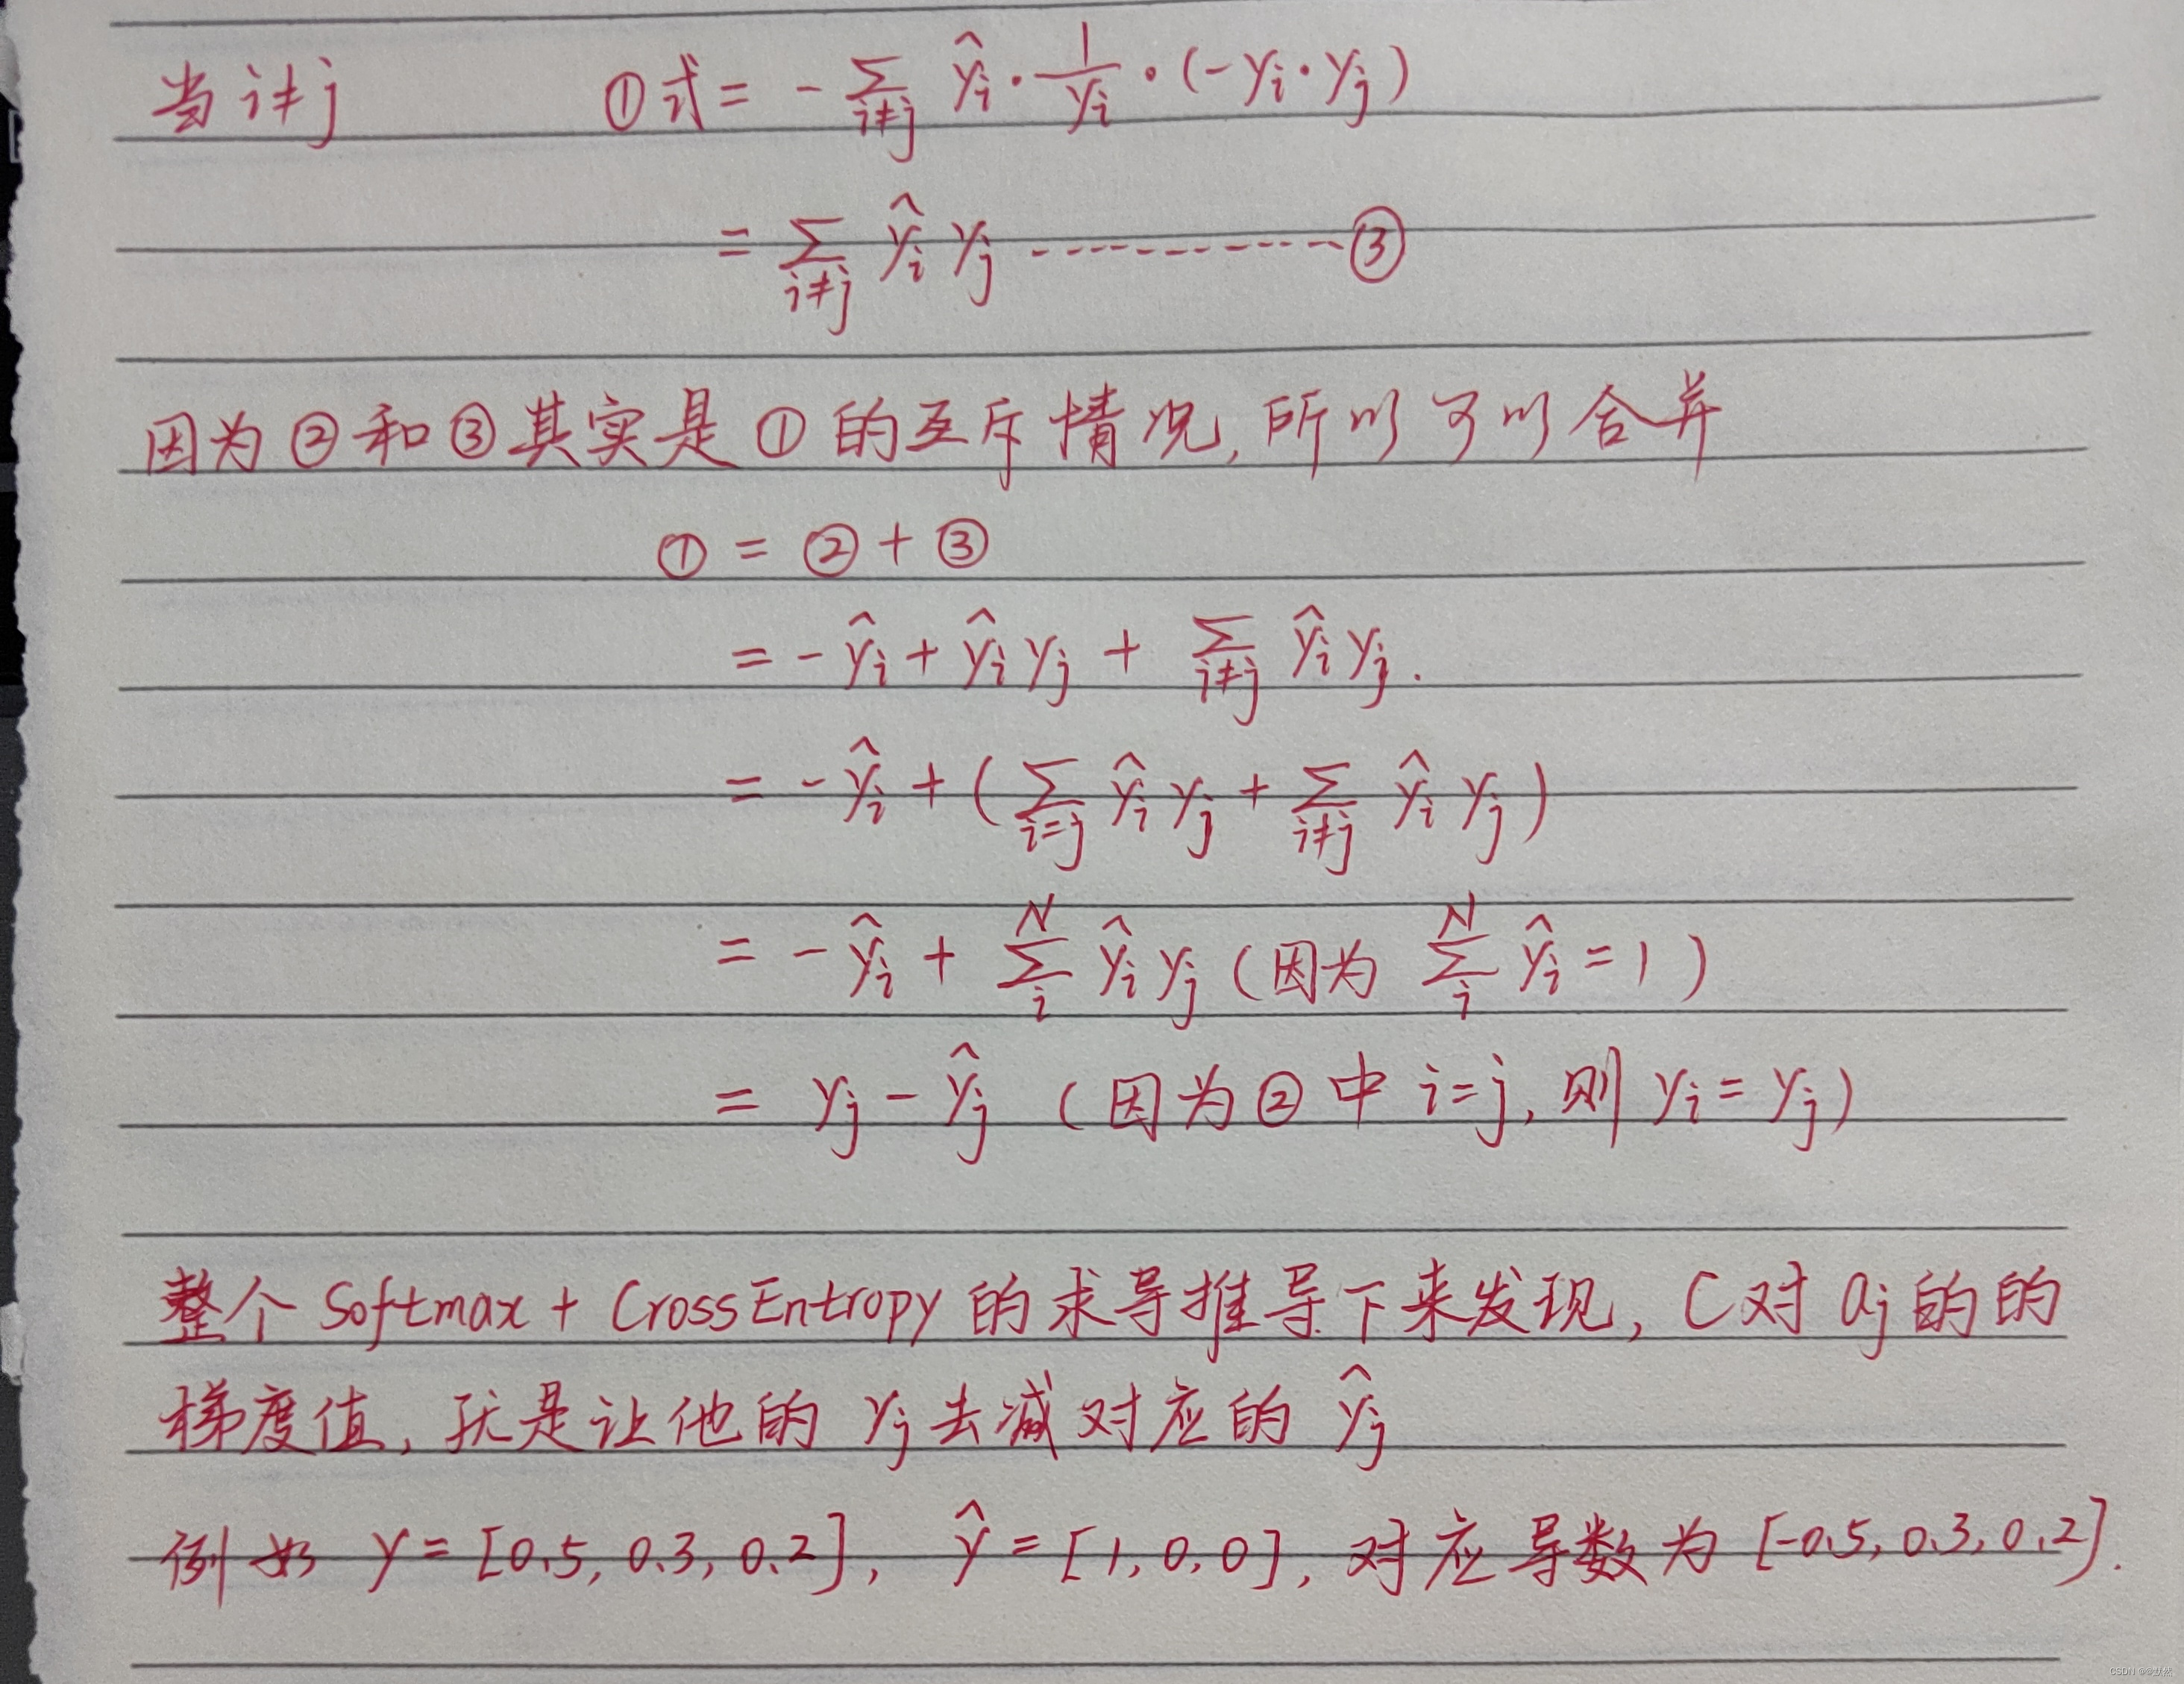 当 i≠j ①式 = - ∑_{i≠j} ŷ_i · 1/y_i · (-y_i · y_j)
= ∑_{i≠j} ŷ_i y_j ------------ ③
因为②和③其实是①的互斥情况, 所以可以合并
① = ② + ③
= - ŷ_i + ŷ_i y_j + ∑_{i≠j} ŷ_i y_j .
= - ŷ_i + ( ∑_{i=j} ŷ_i y_j + ∑_{i≠j} ŷ_i y_j )
= - ŷ_i + ∑_i^N ŷ_i y_j (因为 ∑_i^N ŷ_i = 1 )
= y_j - ŷ_j (因为②中 i=j, 则 y_i = y_j)
整个 Softmax + CrossEntropy 的求导推导下来发现, C对 a_j 的的
梯度值, 就是让他的 y_j 去减对应的 ŷ_j
例如 y = [0.5, 0.3, 0.2], ŷ = [1, 0, 0], 对应导数为 [-0.5, 0.3, 0.2].